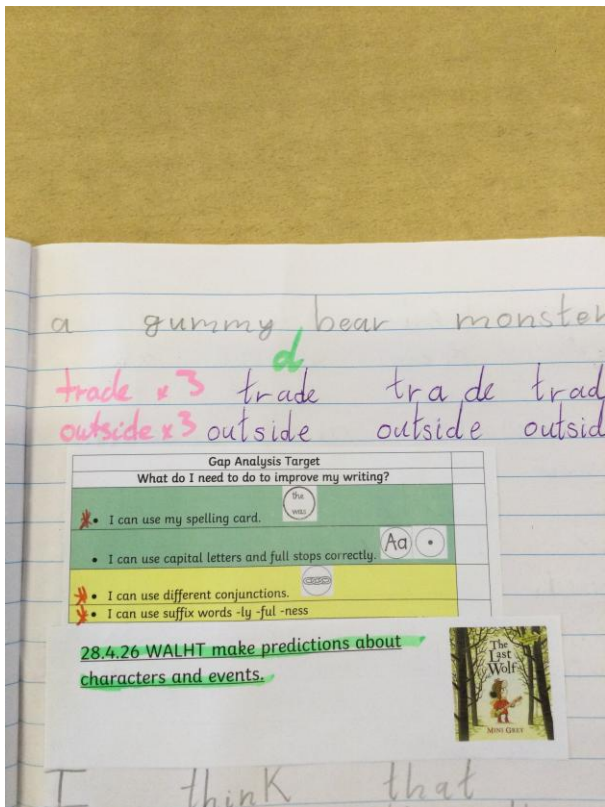 a gummy bear monster
d
trade x 3 trade trade trad
outside x 3 outside outside outsid
Gap Analysis Target
What do I need to do to improve my writing?
the
was
• I can use my spelling card.
• I can use capital letters and full stops correctly. Aa .
• I can use different conjunctions.
• I can use suffix words -ly -ful -ness
28.4.26 WALHT make predictions about
characters and events.
The
Last
Wolf
MINI GREY
I think that